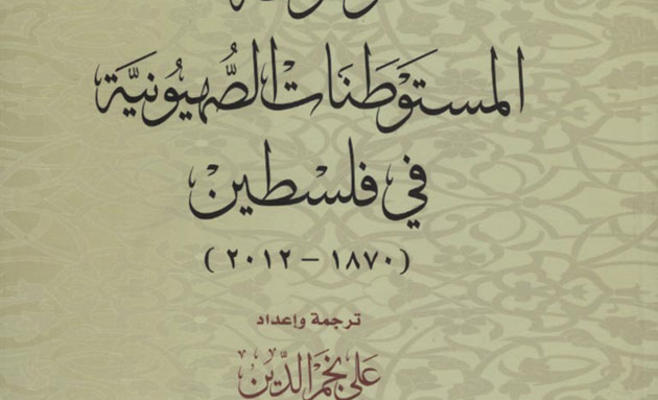 المستوطنات الصهيونية
في فلسطين
(١٨٧٠ – ٢٠١٢)
ترجمة وإعداد
علي نجم الدين